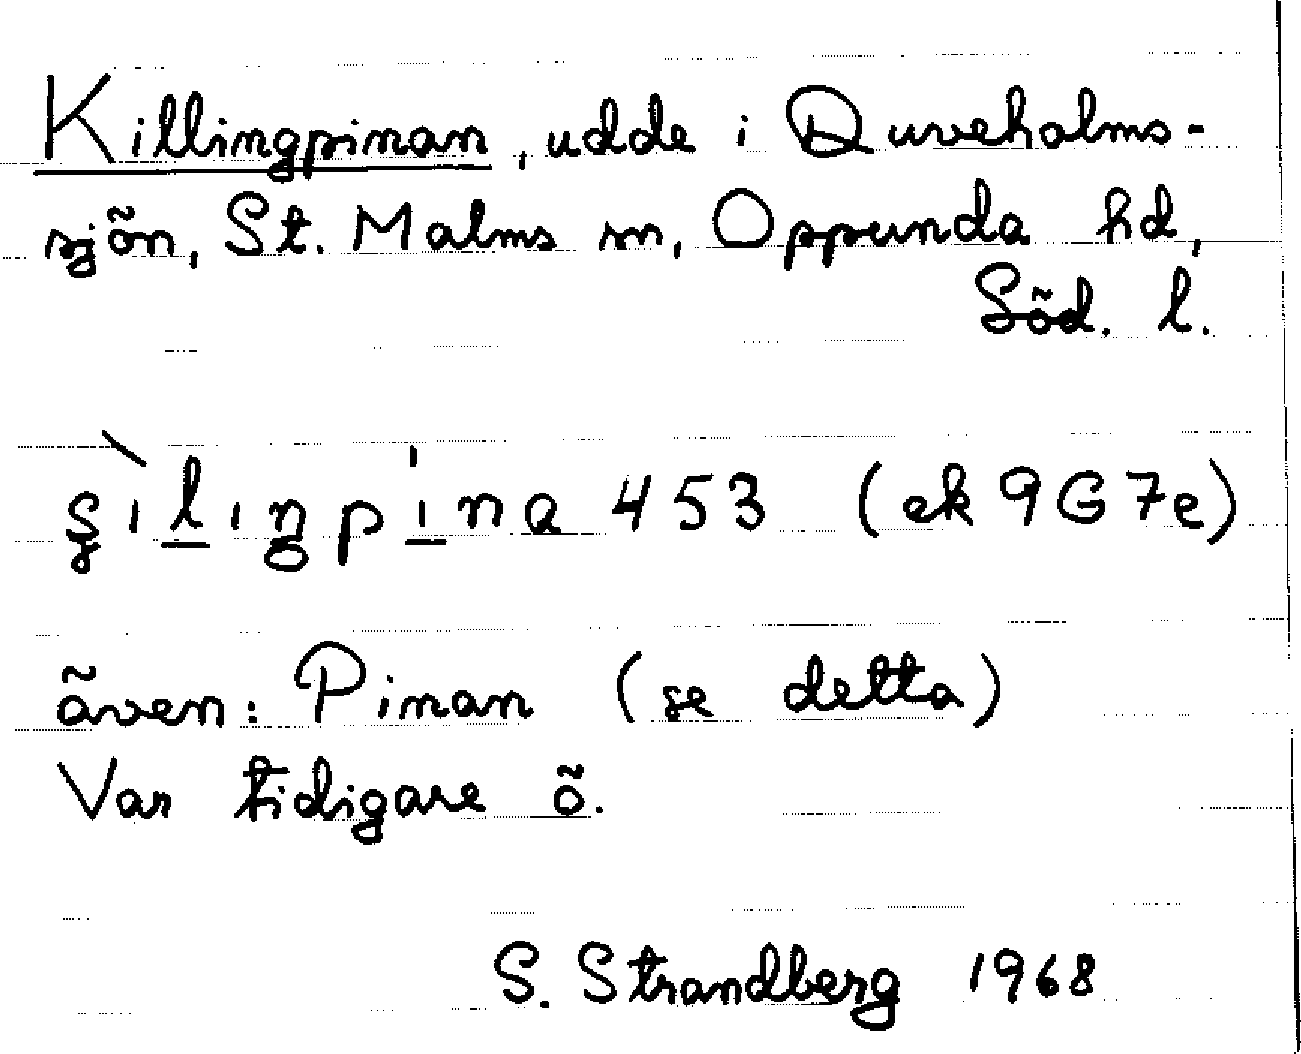 Killingpinan, udde i Duveholms-
sjön, St. Malms sn, Oppunda hd,
Söd. l.
453 (ek 9G7e)
även: Pinan (se detta)
Var tidigare ö.
S. Strandberg 1968